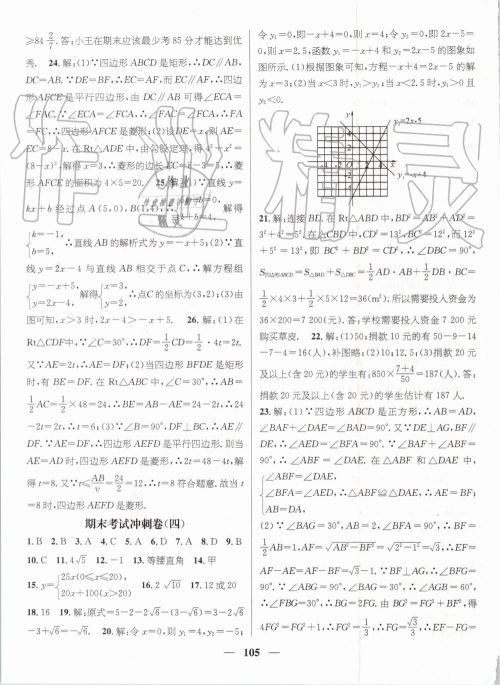 ≥84 2/7. 答:小王在期末应该最少考 85 分才能达到优
秀. 24. 解:(1)∵四边形 ABCD 是矩形,∴DC∥AB,
DC=AB. ∵DE=BF,∴EC=AF,而 EC∥AF,∴四边
形 AFCE 是平行四边形,由 DC∥AB 可得∠ECA=
∠FAC. ∵∠ECA=∠FCA,∴∠FAC=∠FCA,∴FA
=FC,∴四边形 AFCE 是菱形;(2)设 DE=x,则 AE=
EC=8-x. 在 Rt△ADE 中,由勾股定理,得 4²+x²=
(8-x)²,解得 x=3,∴菱形的边长 EC=8-3=5,∴菱
形 AFCE 的面积为 4×5=20. 25. 解:(1)∵直线 y=
kx+b 经过点 A(5,0),B(1,4),∴ 解得
{k=-1, b=5. ∴直线 AB 的解析式为 y=-x+5;(2)∵直
线 y=2x-4 与直线 AB 相交于点 C,∴解方程组
{y=-x+5, y=2x-4, 解得{x=3, y=2, ∴点 C 的坐标为(3,2);(3)由
图可知,x>3 时,2x-4>kx+b. 26. 解:(1)在
Rt△CDF中,∵∠C=30°,∴DF=1/2 CD=1/2·4t=2t.
又∵AE=2t,∴AE=DF;(2)当四边形 BFDE 是矩形
时,有 BE=DF. 在 Rt△ABC 中,∠C=30°,∴AB=
1/2 AC=1/2×48=24,∴BE=AB-AE=24-2t,∴24
-2t=2t,∴t=6;(3)∵∠B=90°,DF⊥BC,∴AE∥
DF. ∵AE=DF,∴四边形 AEFD 是平行四边形. 则当
AE=AD 时,四边形 AEFD 是菱形,∴2t=48-4t,解
得 t=8. 又∵t≤AB/v=24/2=12,∴t=8 符合题意. 故当 t
=8 时,四边形 AEFD 是菱形.
期末考试冲刺卷(四)
1. B 2. B 3. C 4. A 5. D 6. A 7. D 8. B 9. B
10. C 11. 4√5 12. -1 13. 等腰直角 14. 甲
15. y={25x(0≤x≤20), 20x+100(x>20) 16. 2√10 17. 12 或 20
18. 16 19. 解:原式=5-2-2√6-(3-√6)=3-2√6
-3+√6=-√6. 20. 解:令 x=0,则 y₁=4,y₂=-5;
令 y₁=0,即-x+4=0,则 x=4;令 y₂=0,即 2x-5=
0,则 x=2.5,函数 y₁=-x+4 和 y₂=2x-5 的图象如
图所示. (1)根据图象可知,方程-x+4=2x-5 的解
为 x=3;(2)当 x<3 时,y₁>y₂;当 x<2.5 时,y₁>0 且
y₂<0.
y₂=2x-5
y₁=-x+4
21. 解:连接 BD. 在 Rt△ABD 中,BD²=AB²+AD²=
3²+4²=5². 在△CBD 中,CD²=13²,BC²=12²,而 12²
+5²=13²,即 BC²+BD²=CD²,∴∠DBC=90°,
S四边形ABCD=S△BAD+S△DBC=1/2·AD·AB+1/2 DB·BC=
1/2×4×3+1/2×5×12=36(m²). 所以需要投入资金为
36×200=7 200(元). 答:学校需要投入资金 7 200 元
购买草皮. 22. 解:(1)50;捐款 10 元的有 50-9-14
-7-4=16(人),补图略;(2)10;12.5;(3)捐款 20 元
及以上(含 20 元)的学生有:850×(7+4)/50=187(人). 答:
捐款 20 元及以上(含 20 元)的学生估计有 187 人.
23. 解:(1)∵四边形 ABCD 是正方形,∴AB=AD,
∠BAF+∠DAE=∠BAD=90°. 又∵DE⊥AG,BF∥
DE,∴∠AED=∠BFA=90°. ∵∠BAF+∠ABF=
90°,∴∠ABF=∠DAE. 在△ABF 和△DAE 中,
{∠ABF=∠DAE, ∠BFA=∠AED, AB=DA, ∴△ABF≌△DAE,∴AE=BF;
(2)∵∠BAG=30°,AB=2,∠BFA=90°,∴BF=
1/2 AB=1,AF=√(AB²-BF²)=√(2²-1²)=√3,∴EF=
AF-AE=AF-BF=√3-1. ∵BF⊥AG,∴∠BFG=
90°. ∵∠ABG=90°,∠BAG=30°,∴∠AGB=60°,
∴∠FBG=30°,∴BG=2FG. 由 BG²=FG²+BF²,得
4FG²=FG²+1,∴FG²=1/3,∴FG=√3/3,∴EF+FG=
105